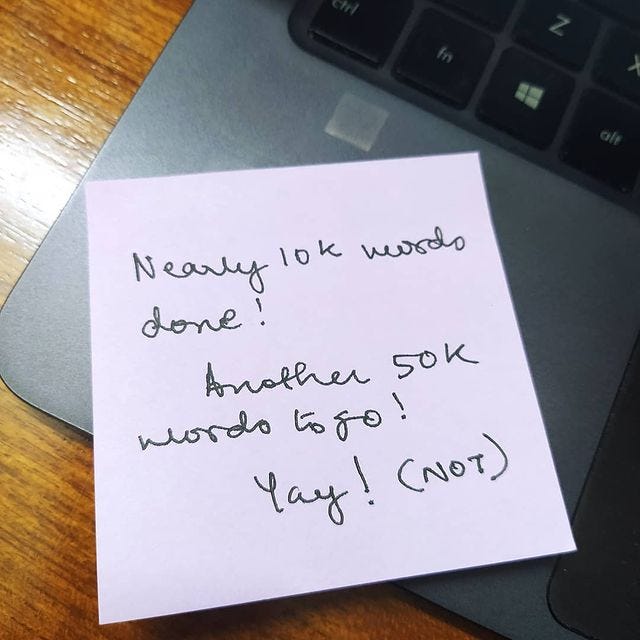 ctrl
fn
Z
X
alt
Nearly 10K words
done!
Another 50K
words to go!
Yay! (NOT)